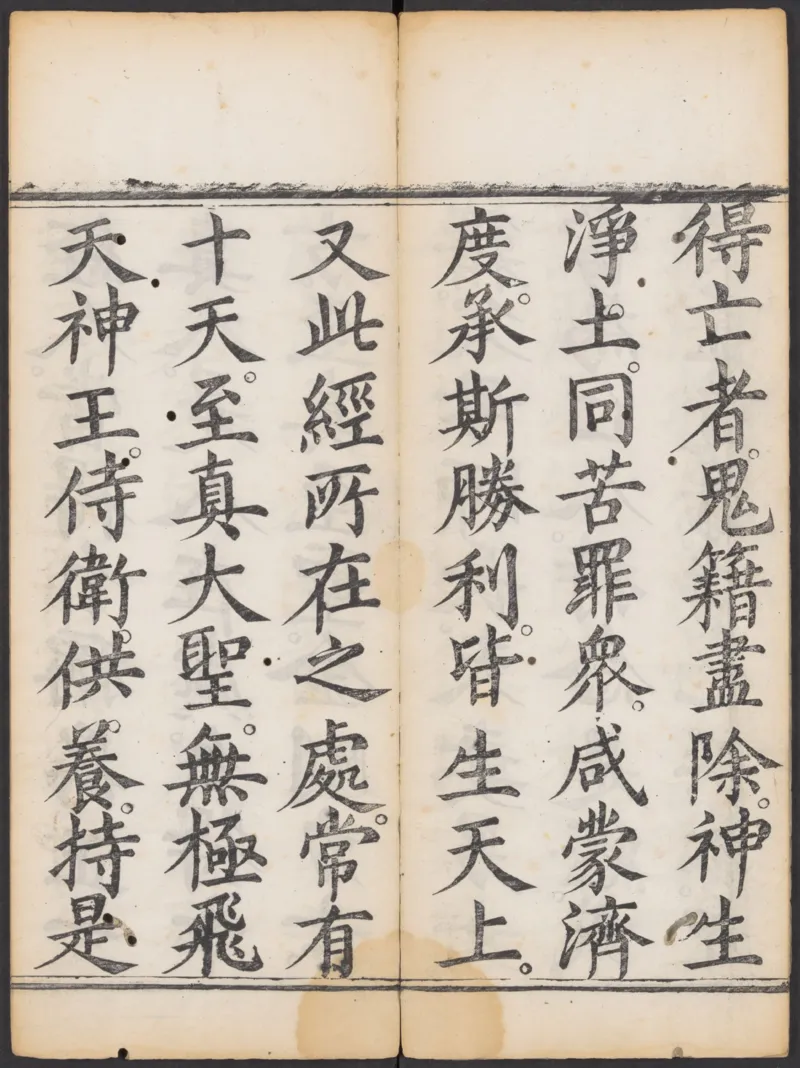 得亡者。鬼籍盡除。神生
淨土。同苦罪衆。咸蒙濟
度。承斯勝利。皆生天上。
又此經所在之處。常有
十天。至真大聖。無極飛
天神王。侍衛。供養。持是